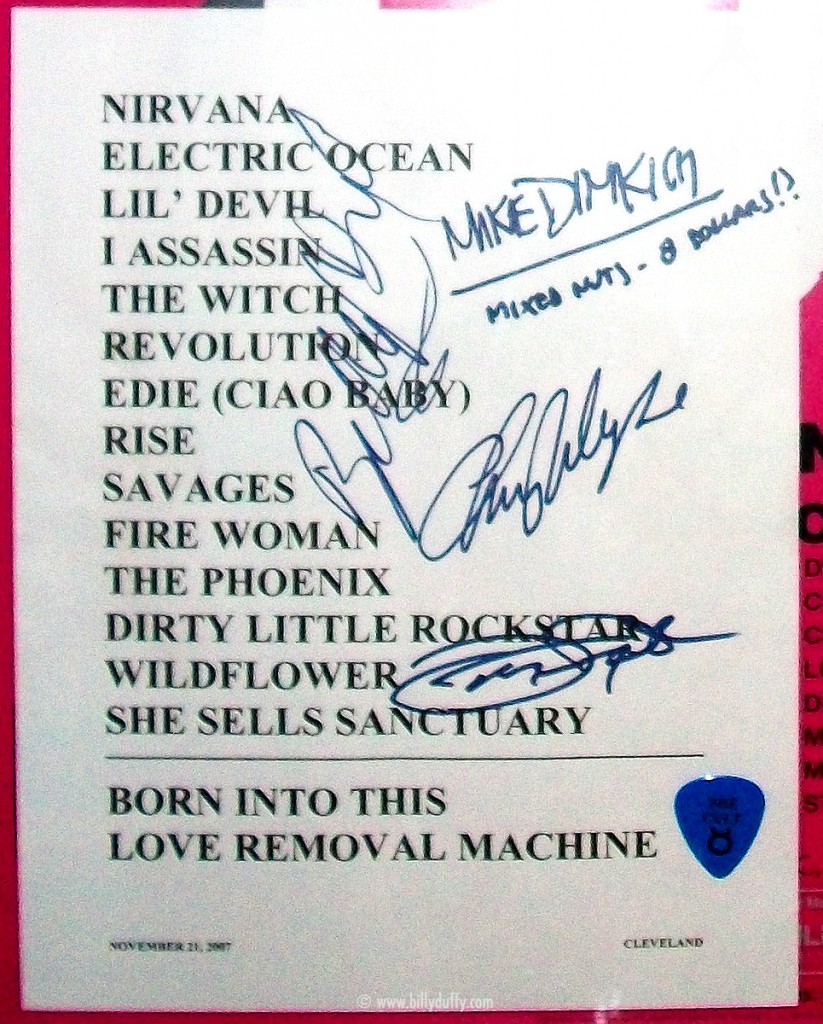 NIRVANA
ELECTRIC OCEAN
LIL' DEVIL
I ASSASSIN
THE WITCH
REVOLUTION
EDIE (CIAO BABY)
RISE
SAVAGES
FIRE WOMAN
THE PHOENIX
DIRTY LITTLE ROCKSTAR
WILDFLOWER
SHE SELLS SANCTUARY
BORN INTO THIS
LOVE REMOVAL MACHINE
MIKE DIMKICH
MIXED NUTS - 8 DOLLARS!?
THE
CULT
NOVEMBER 21, 2007
CLEVELAND
© www.billyduffy.com